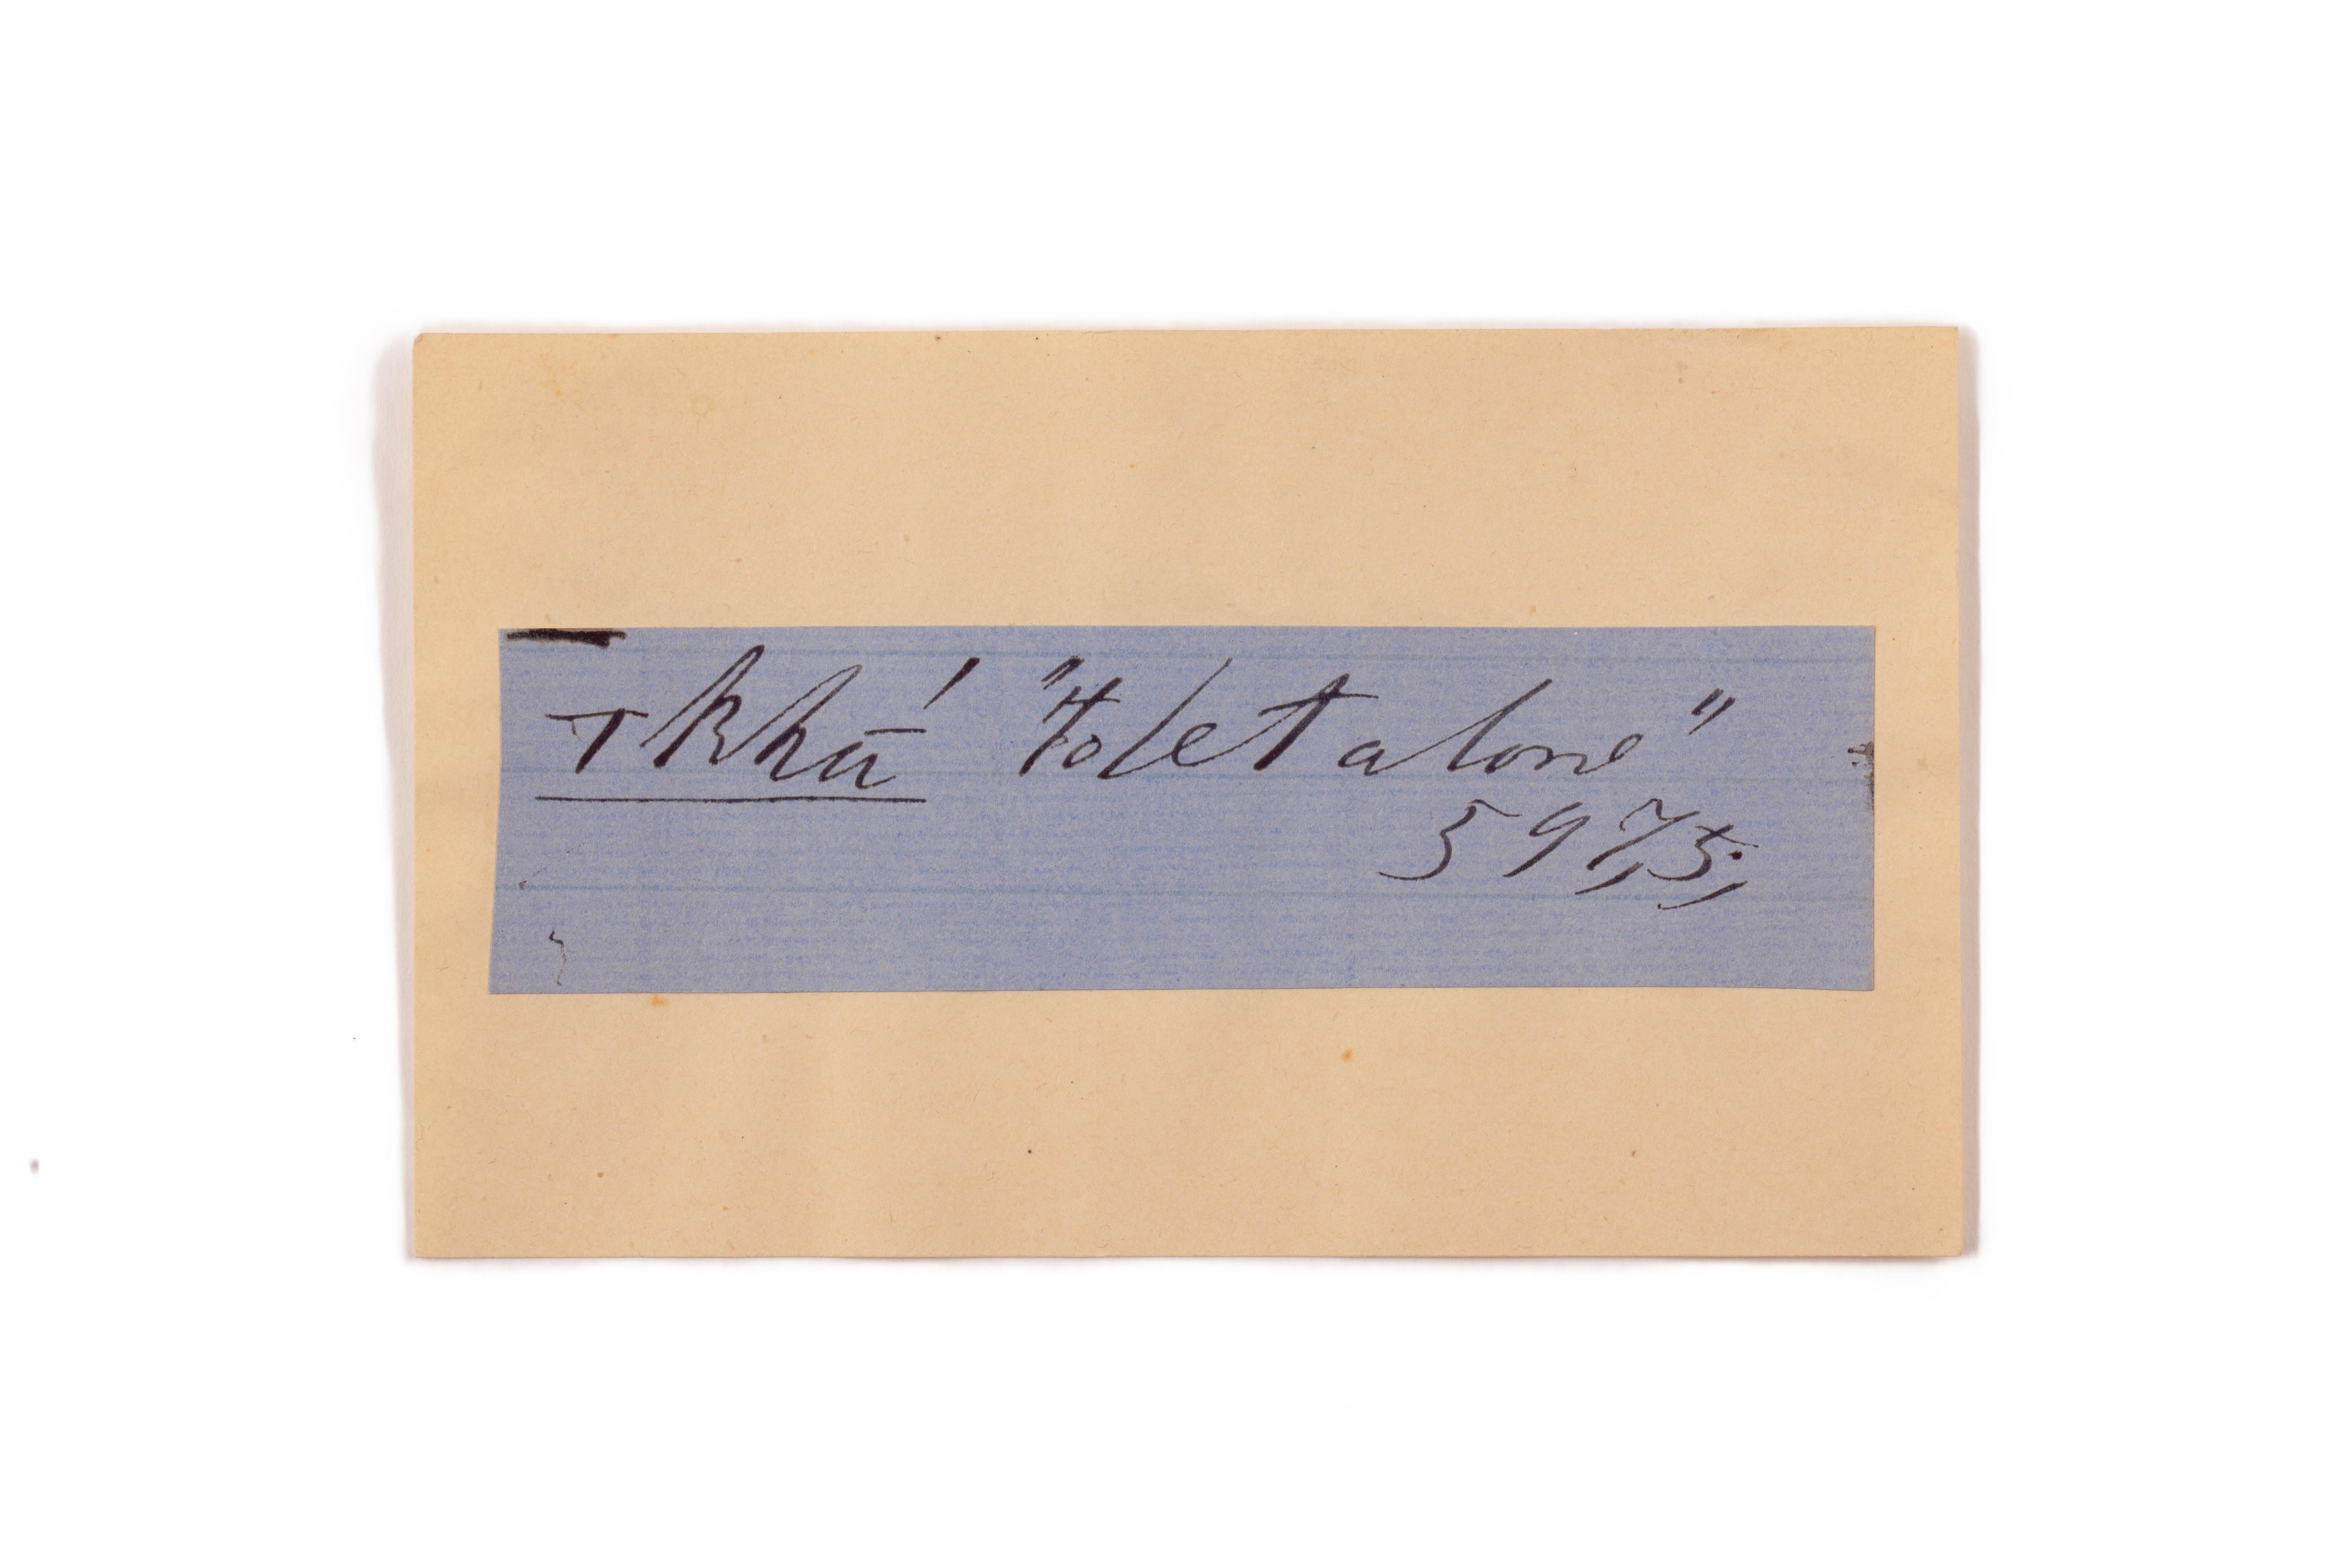 Tkhū' "to let alone"
5975,